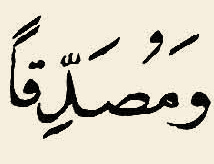 وَمُصَدِّقاً